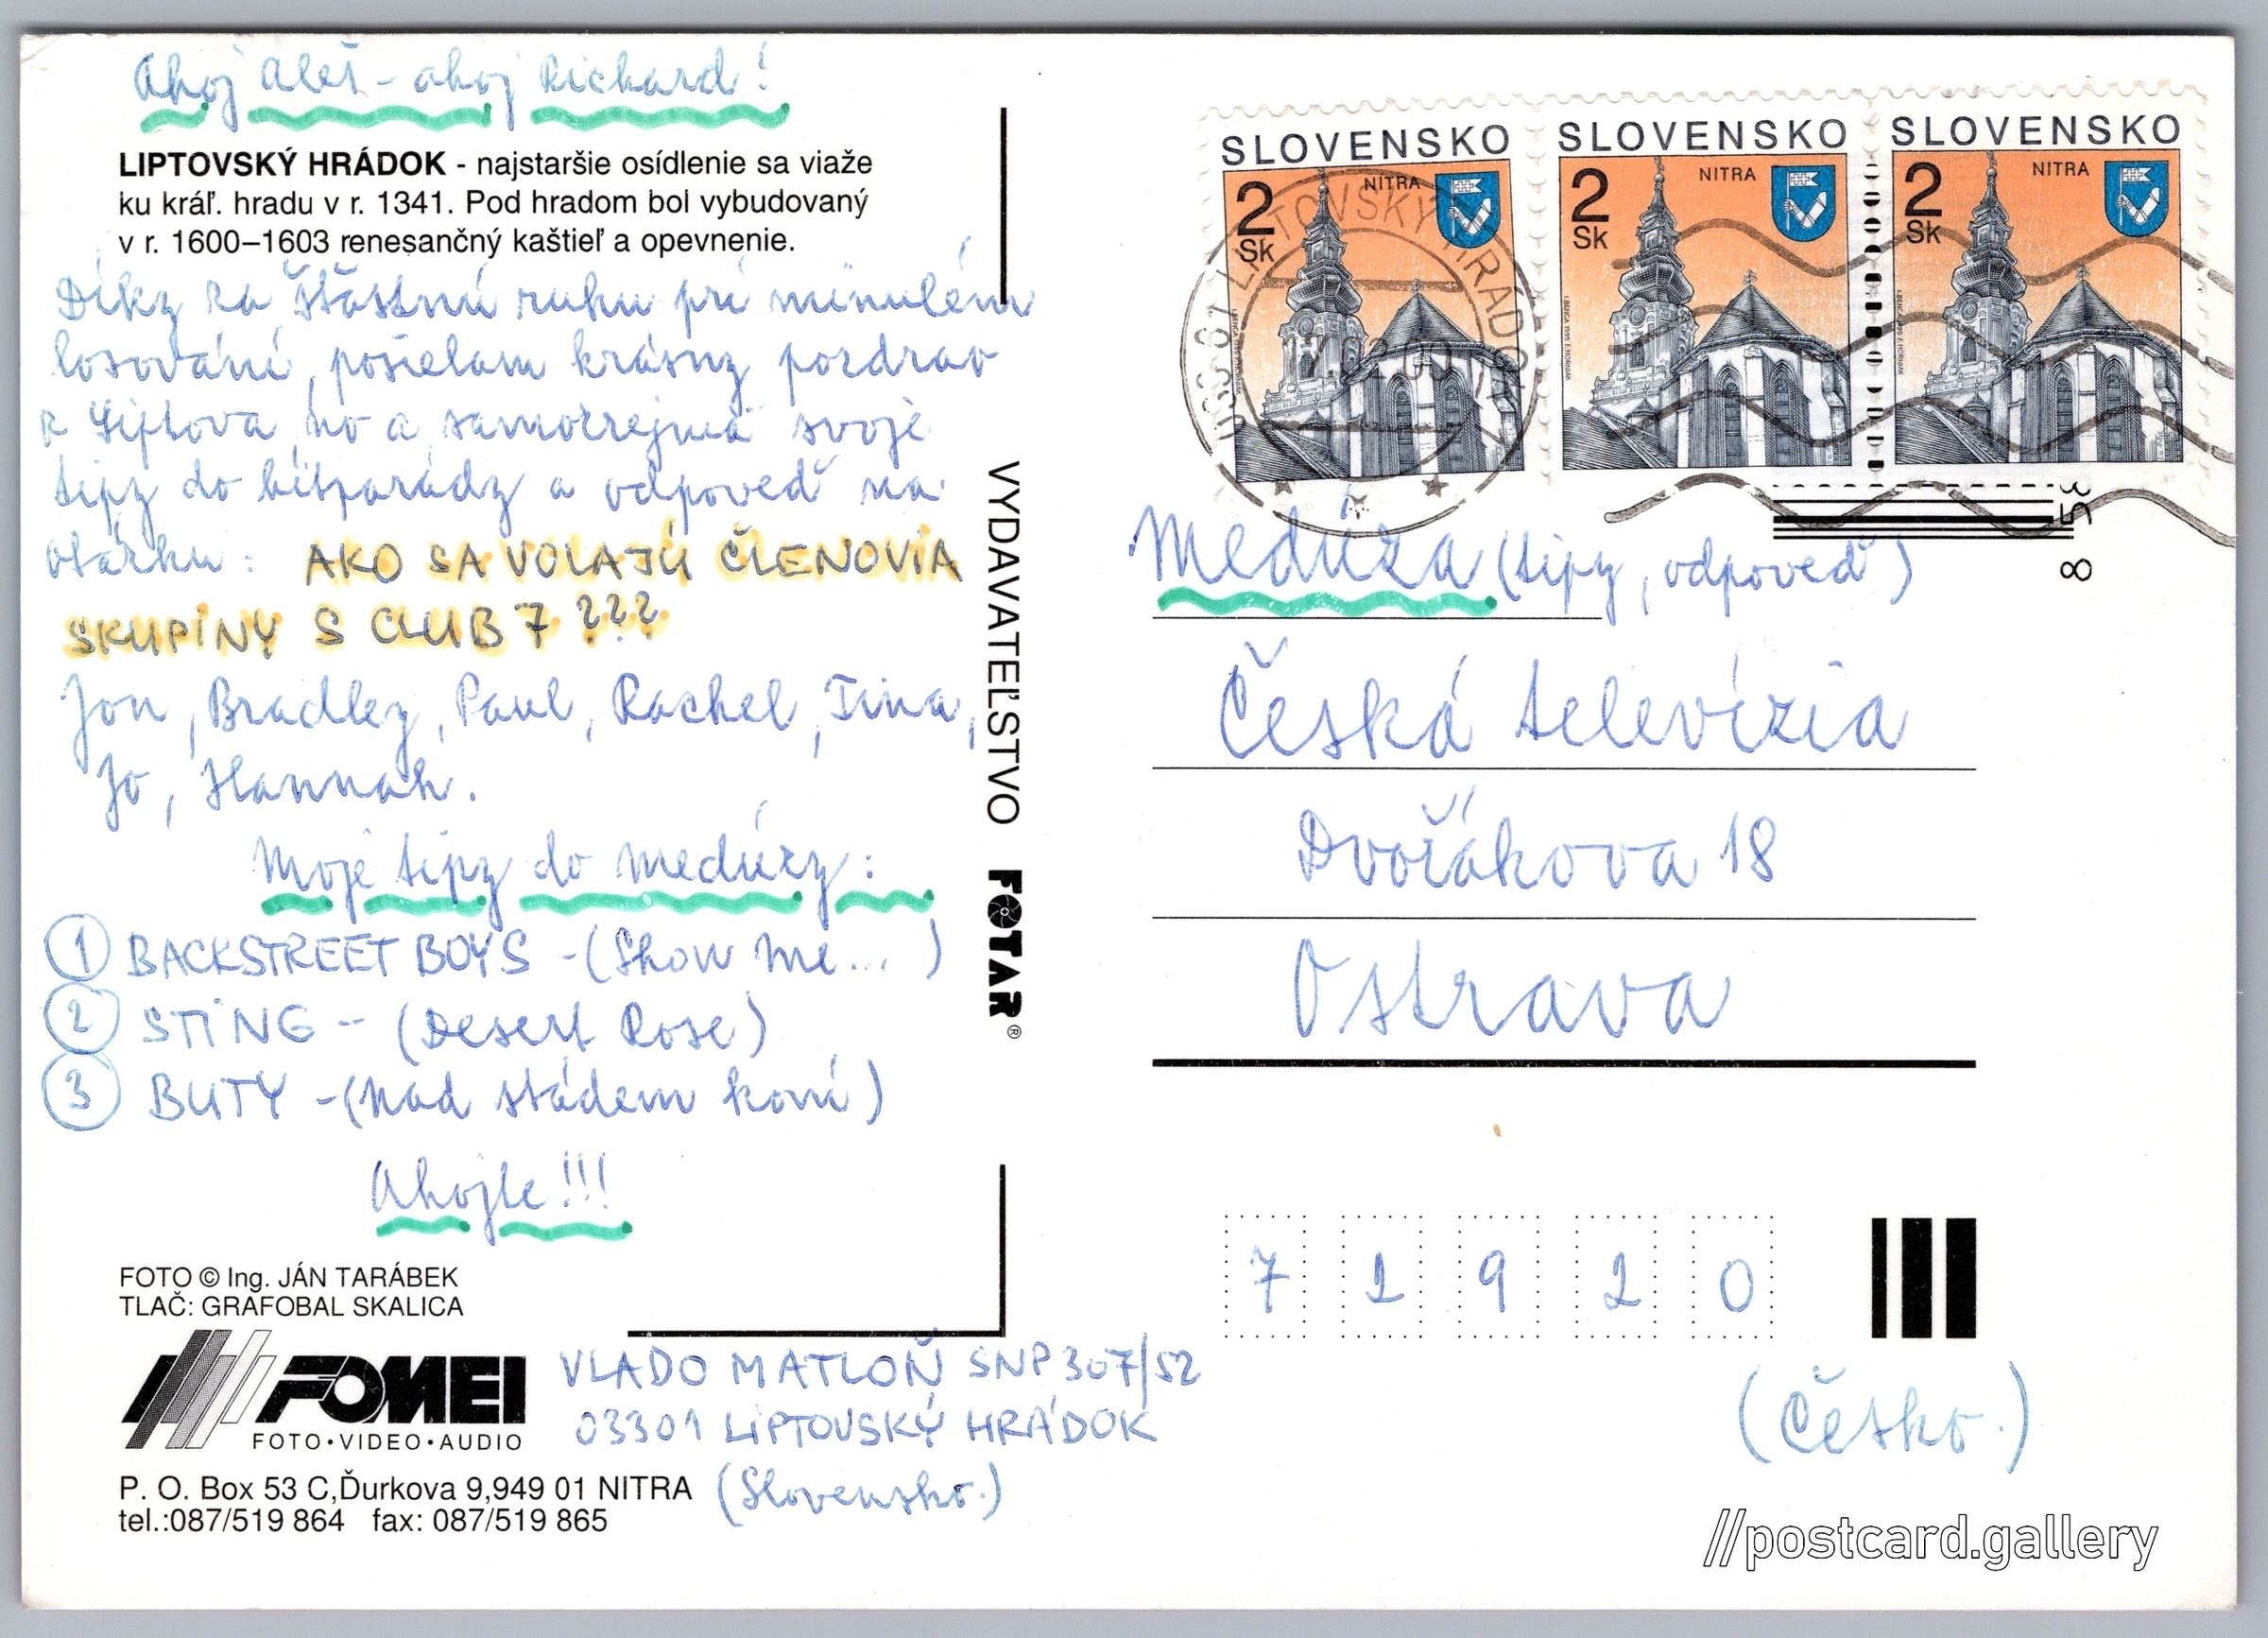 Ahoj Aleš - ahoj Richard!
LIPTOVSKÝ HRÁDOK - najstaršie osídlenie sa viaže
ku kráľ. hradu v r. 1341. Pod hradom bol vybudovaný
v r. 1600–1603 renesančný kaštieľ a opevnenie.
Díky za šťastnú ruku pri minulém
losování, posielam krásny pozdrav
z Liptova no a samozrejmä svoje
tipy do hitparády a odpoveď na
otázku: AKO SA VOLAJÚ ČLENOVIA
SKUPINY S CLUB 7 ???
Jon, Bradley, Paul, Rachel, Tina,
Jo, Hannah.
Moje tipy do medúzy:
1 BACKSTREET BOYS - (Show me... )
2 STING - (Desert Rose)
3 BUTY - (Nad stádem koní)
Ahojte!!!
FOTO © Ing. JÁN TARÁBEK
TLAČ: GRAFOBAL SKALICA
FOMEI
FOTO • VIDEO • AUDIO
P. O. Box 53 C,Ďurkova 9,949 01 NITRA
tel.:087/519 864 fax: 087/519 865
VLADO MATLOŇ SNP 307/52
03301 LIPTOVSKÝ HRÁDOK
(Slovensko.)
VYDAVATEĽSTVO FOTAR ®
SLOVENSKO
2 Sk
NITRA
SLOVENSKO
2 Sk
NITRA
SLOVENSKO
2 Sk
NITRA
LIPTOVSKÝ HRÁDOK
853 8
Medúza (tipy, odpoveď)
Česká televízia
Dvořákova 18
Ostrava
7 1 9 2 0
(Česko.)
//postcard.gallery